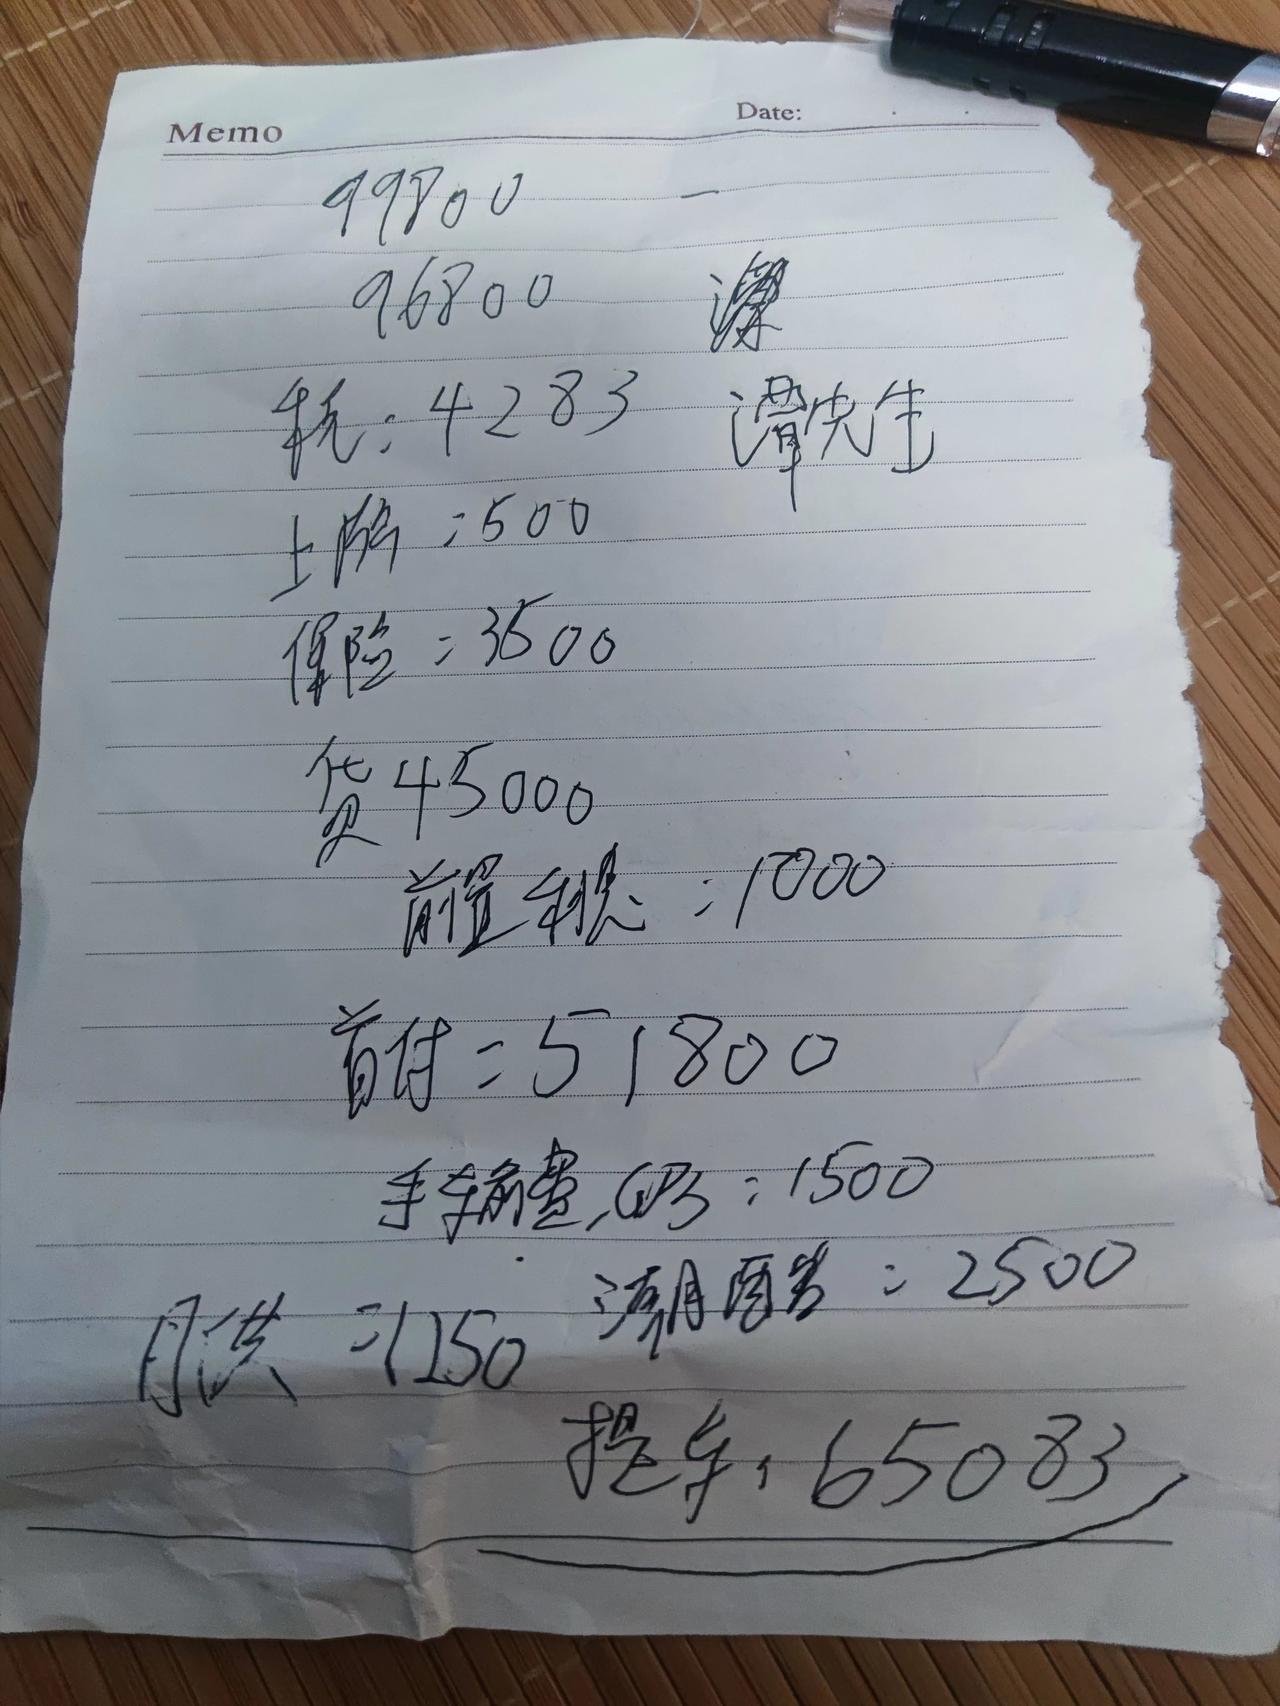 Memo Date:
99800 —
96800
税：4283 谭先生
上牌：500
保险：3500
贷45000
前置利息：1000
首付：51800
手续费，GPS：1500
月供：1250
：2500
提车：65083